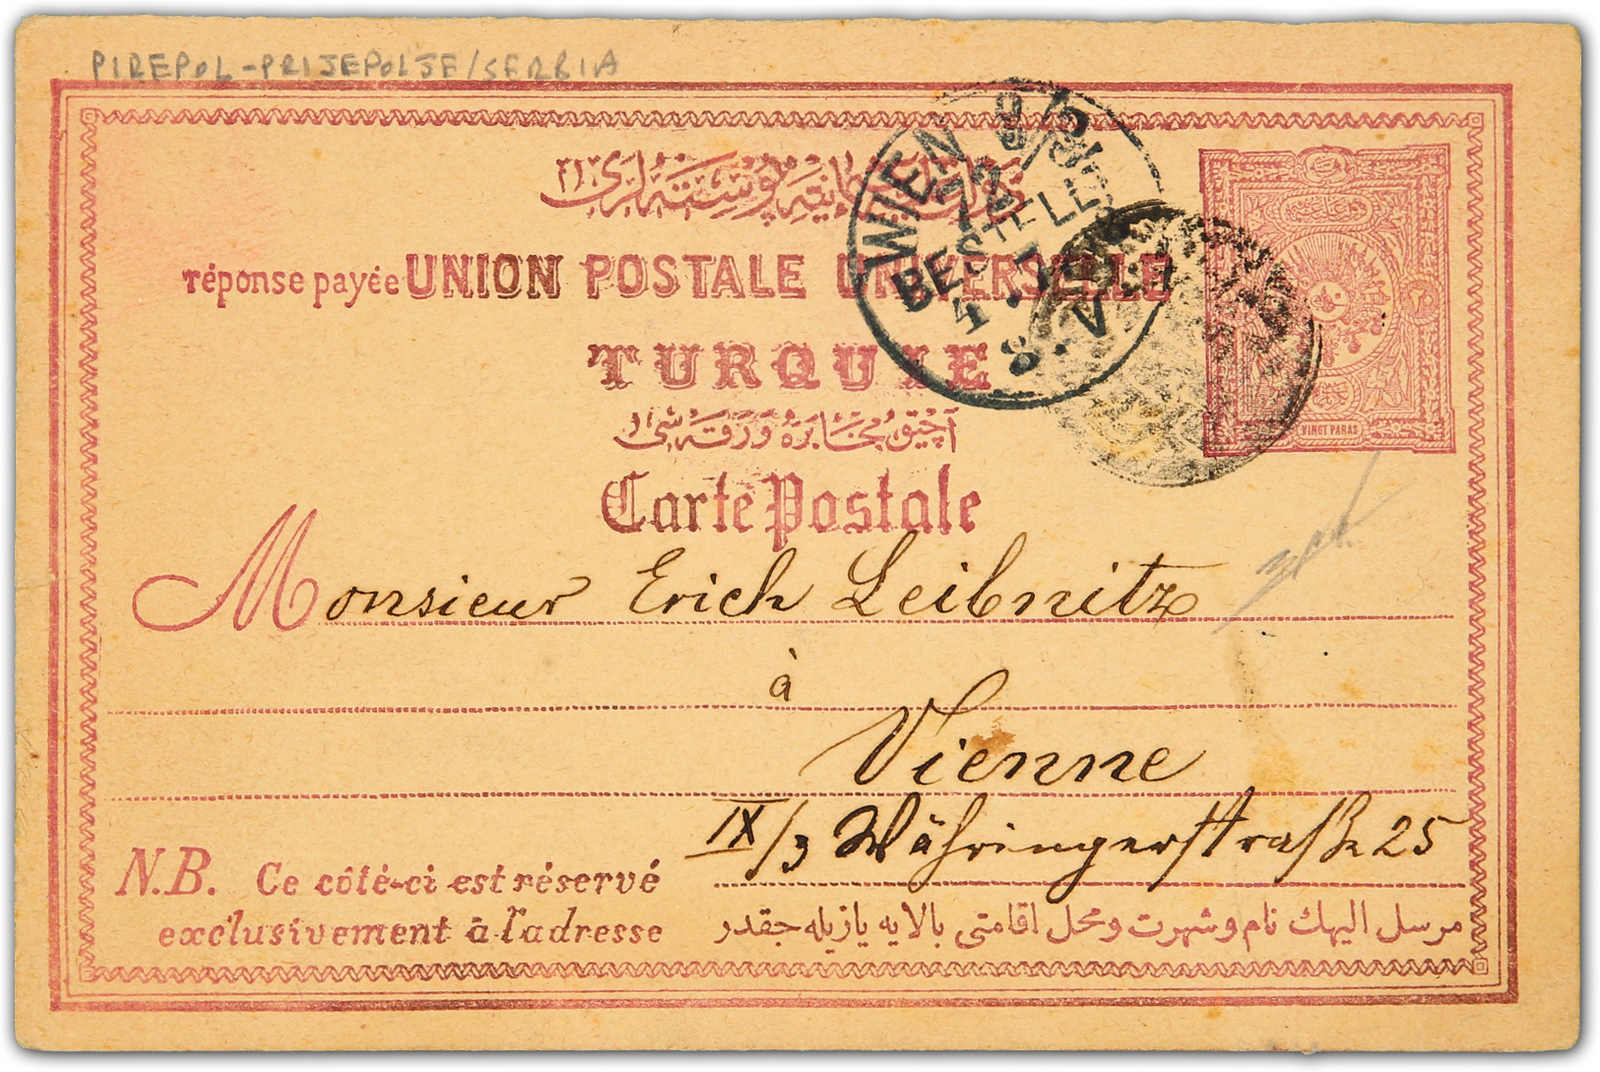 PIREPOL-PRIJEPOLJE/SERBIA
réponse payée UNION POSTALE UNIVERSELLE
TURQUIE
آچیق مخابره ورقه سی
Carte Postale
WIEN 9/3
72
BESTELLT
VINGT PARAS
Monsieur Erich Leibnitz
à
Vienne
IX/3 Währingerstraße 25
N.B. Ce côté-ci est réservé
exclusivement à l'adresse
مرسل اليهك نام و شهرت و محل اقامتی بالايه يازيله جقدر